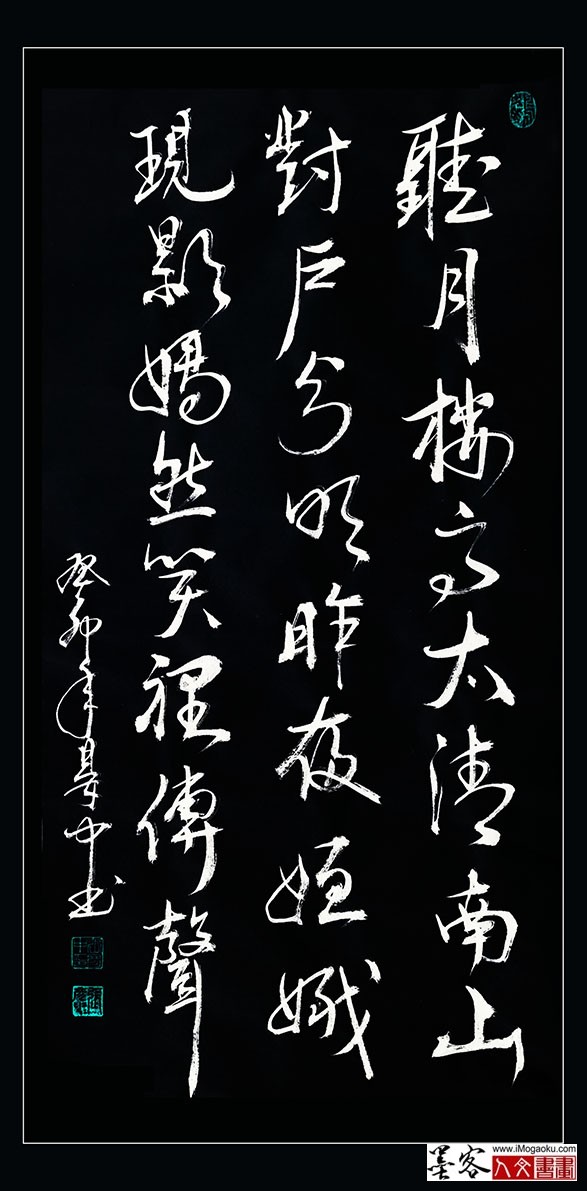 聽月樓高太清南山
對戶分明昨夜姮娥
現影嫣然笑裡傳聲
癸卯年中书
墨客
www.iMogaoku.com
人文書畫